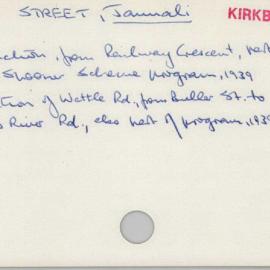 STREET, Jannali
KIRKB
, from Railway Crescent, part
Spooner Scheme program, 1939
tion of Wattle Rd., from Buller St. to
River Rd., also part of program, 1939